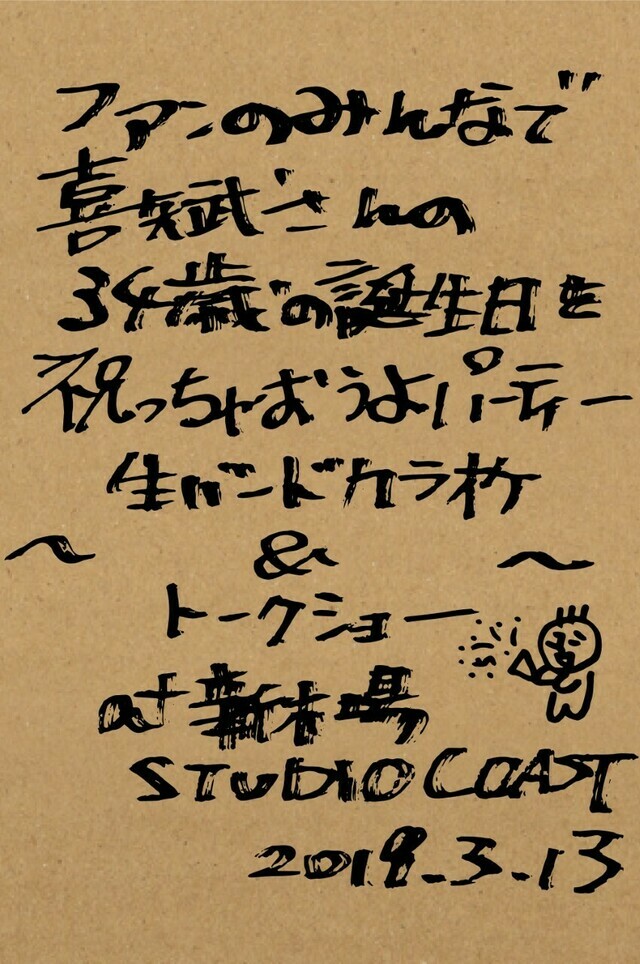 ファンのみんなで
喜矢武さんの
34歳の誕生日を
祝っちゃおうよパーティー
生バンドカラオケ
〜 & 〜
トークショー
at 新木場
STUDIO COAST
2019.3.13